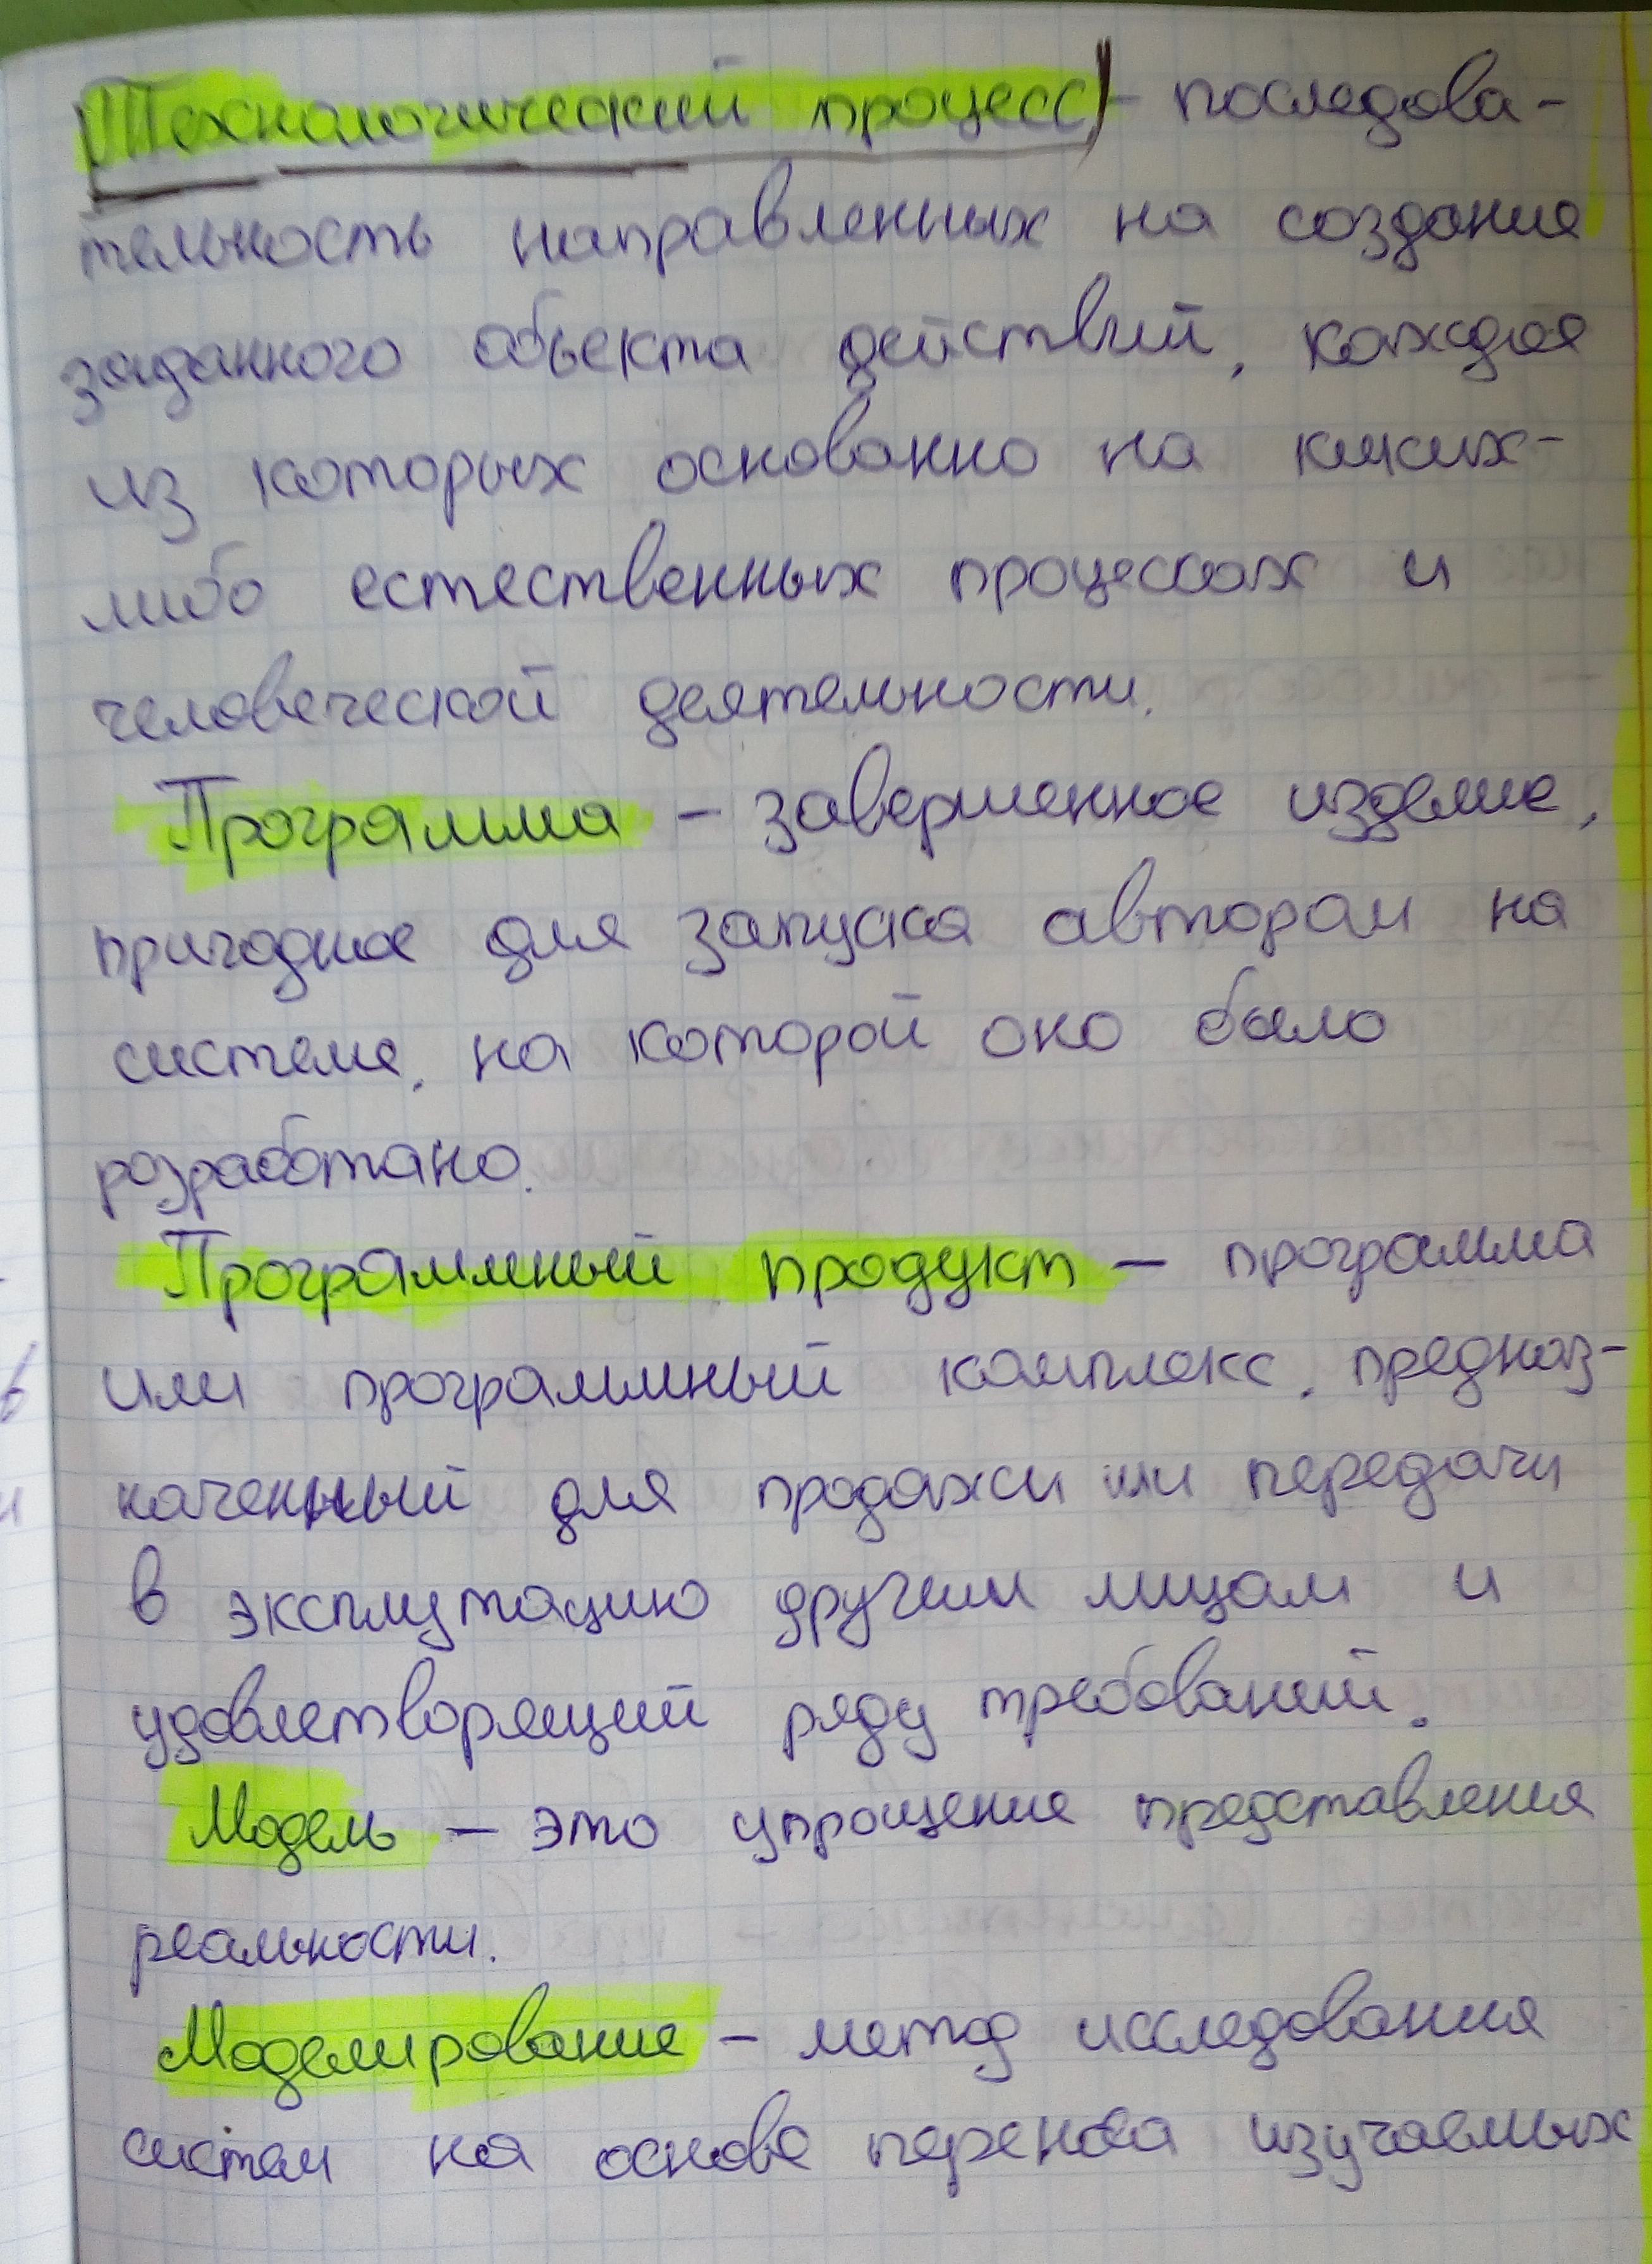 Технологический процесс - последова-
тельность направленных на создание
заданного объекта действий, каждое
из которых основанно на каких-
либо естественных процессах и
человеческой деятельности.
Программа - завершенное изделие,
пригодное для запуска автором на
системе, на которой оно было
розработано.
Программный продукт - программа
или программный комплекс, предназ-
наченный для продажи или передачи
в эксплутацию другим лицам и
удовлетворящий ряду требований.
Модель - это упрощение представления
реальности.
Моделирование - метод исследования
систем на основе переноса изучаемых